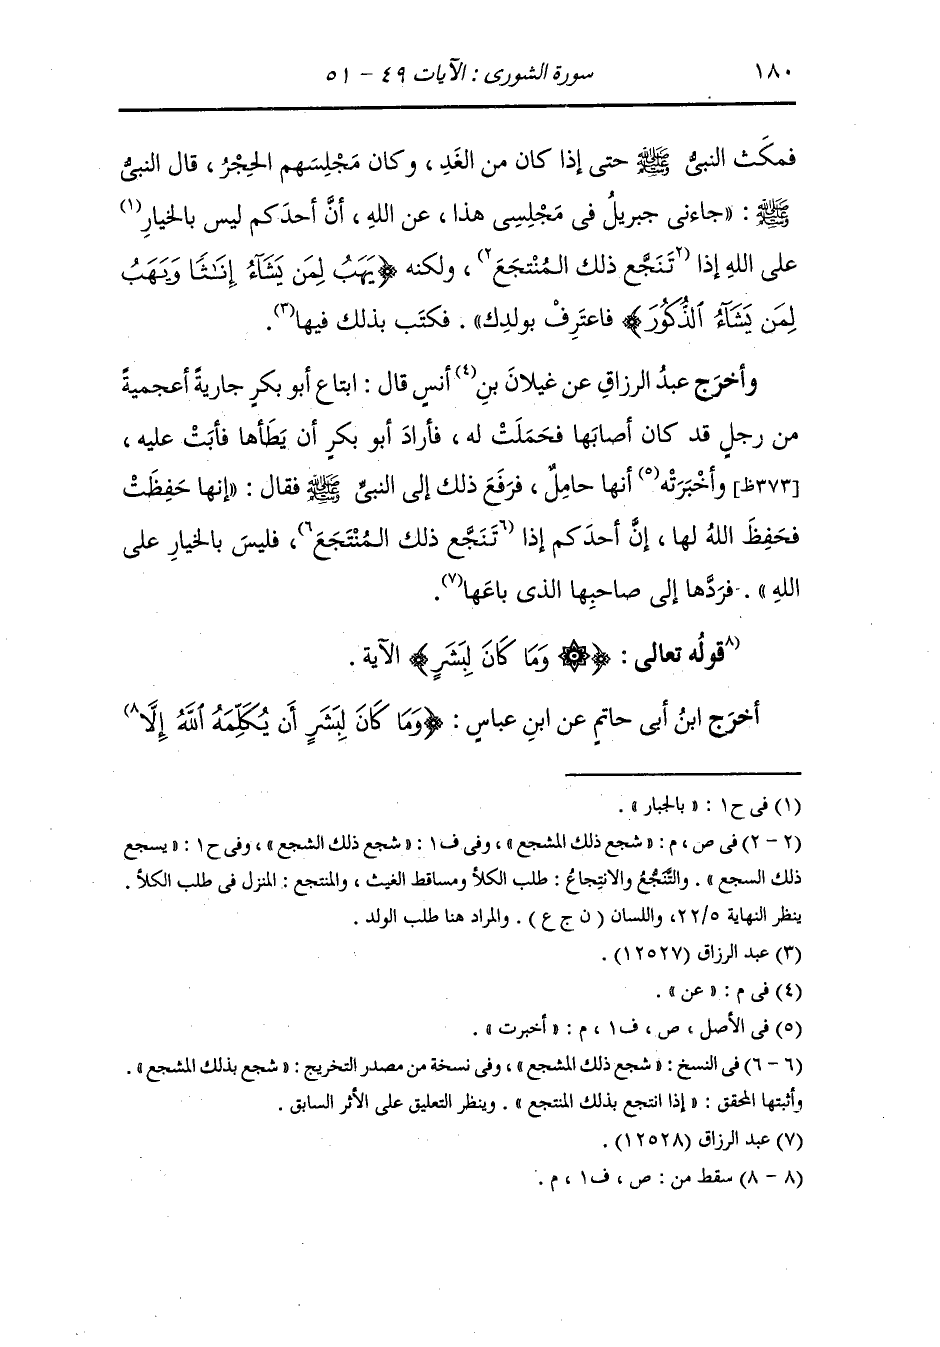 ١٨٠ سورة الشورى : الآيات ٤٩ - ٥١
فمكَث النبىُّ ﷺ حتى إذا كان من الغَدِ ، وكان مَجْلِسَهم الحِجْرُ ، قال النبىُّ
ﷺ : «جاءنى جبريلُ فى مَجْلِسِى هذا ، عن اللهِ ، أنَّ أحدَكم ليس بالخيارِ(١)
على اللهِ إذا (٢تَنَجَّع ذلك المُنْتجَعَ٢) ، ولكنه ﴿يَهَبُ لِمَن يَشَآءُ إِنَـٰثًا وَيَهَبُ
لِمَن يَشَآءُ ٱلذُّكُورَ﴾ فاعتَرِفْ بولدِك» . فكتَب بذلك فيها(٣).
وأخرَج عبدُ الرزاقِ عن غيلانَ بنِ(٤) أنسٍ قال : ابتاع أبو بكرٍ جاريةً أعجميةً
من رجلٍ قد كان أصابَها فحَمَلَتْ له ، فأرادَ أبو بكرٍ أن يَطَأها فأبَتْ عليه ،
[٣٧٣ظ] وأخْبَرَتْه(٥) أنها حامِلٌ ، فرَفَعَ ذلك إلى النبىِّ ﷺ فقال : «إنها حَفِظَتْ
فحَفِظَ اللهُ لها ، إنَّ أحدَكم إذا (٦تَنَجَّع ذلك المُنْتَجَعَ٦)، فليسَ بالخيارِ على
اللهِ» . فرَدَّها إلى صاحبِها الذى باعَها(٧).
(٨قولُه تعالى : ﴿۞ وَمَا كَانَ لِبَشَرٍ﴾ الآية .
أخرَج ابنُ أبى حاتمٍ عن ابنِ عباسٍ : ﴿وَمَا كَانَ لِبَشَرٍ أَن يُكَلِّمَهُ ٱللَّهُ إِلَّا٨)
(١) فى ح١ : «بالجبار» .
(٢ - ٢) فى ص ، م : «شجع ذلك المشجع» ، وفى ف١ : «شجع ذلك الشجع» ، وفى ح١ : «يسجع
ذلك السجع» . والتَّنَجُّعُ والانتِجاعُ : طلب الكلأ ومساقط الغيث ، والمنتجع : المنزل فى طلب الكلأ .
ينظر النهاية ٢٢/٥، واللسان ( ن ج ع ) . والمراد هنا طلب الولد .
(٣) عبد الرزاق (١٢٥٢٧) .
(٤) فى م : «عن» .
(٥) فى الأصل ، ص ، ف١ ، م : «أخبرت» .
(٦ - ٦) فى النسخ : «شجع ذلك المشجع» ، وفى نسخة من مصدر التخريج : «شجع بذلك المشجع» .
وأثبتها المحقق : «إذا انتجع بذلك المنتجع» . وينظر التعليق على الأثر السابق .
(٧) عبد الرزاق (١٢٥٢٨) .
(٨ - ٨) سقط من : ص ، ف١ ، م .